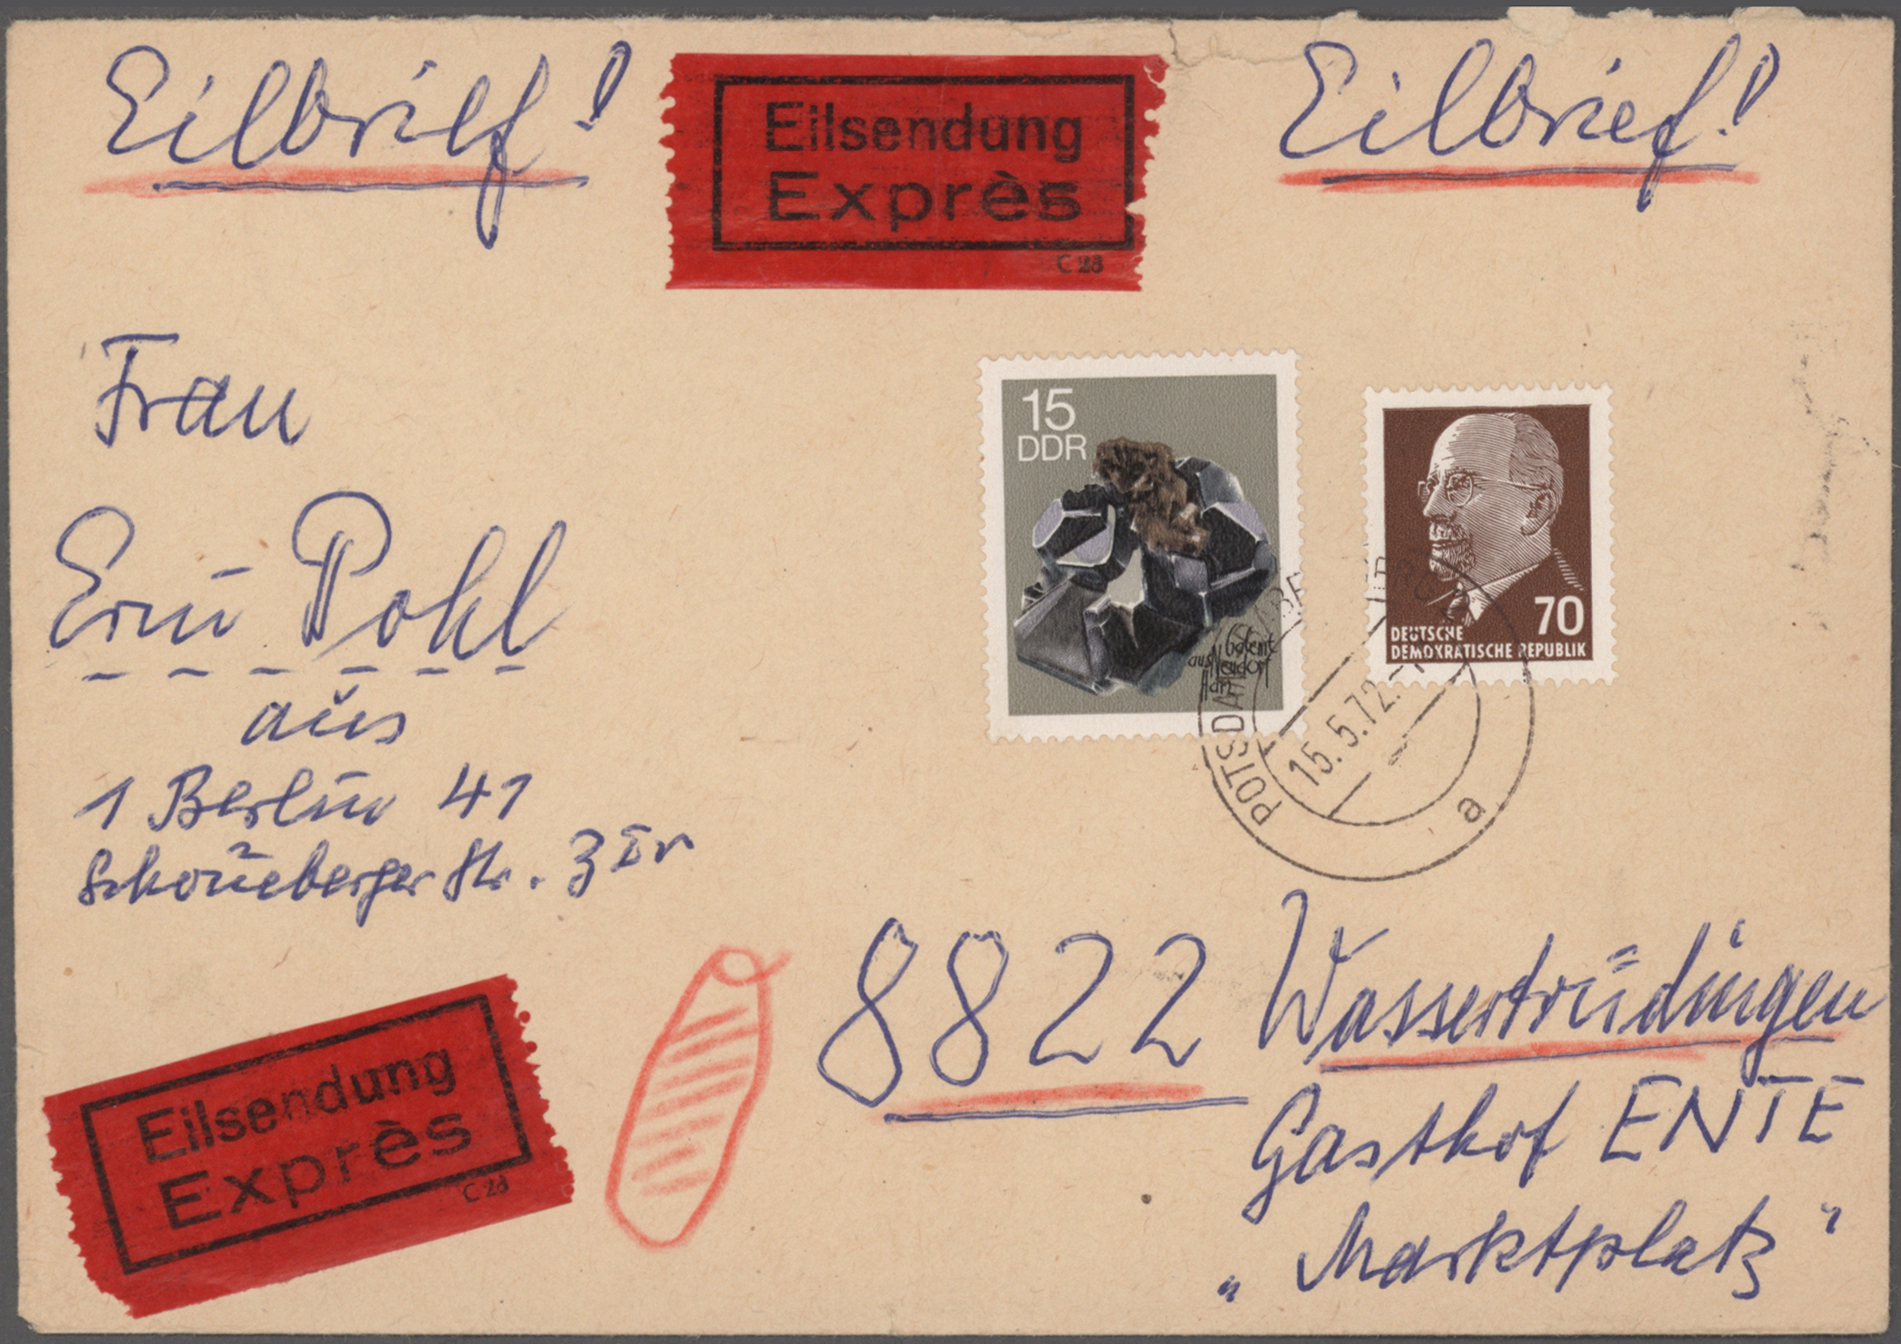 Eilbrief!
Eilsendung
Exprès
C 28
Eilbrief!
Frau
Erni Pohl
aus
1 Berlin 41
Schöneberger Str. 3 Ir
15
DDR
Galenit
aus Neudorf
Harz
70
DEUTSCHE
DEMOKRATISCHE REPUBLIK
POTSDAM
15.5.72.
a
8822 Wassertrüdingen
Gasthof ENTE
„Marktplatz"
Eilsendung
Exprès
C 28